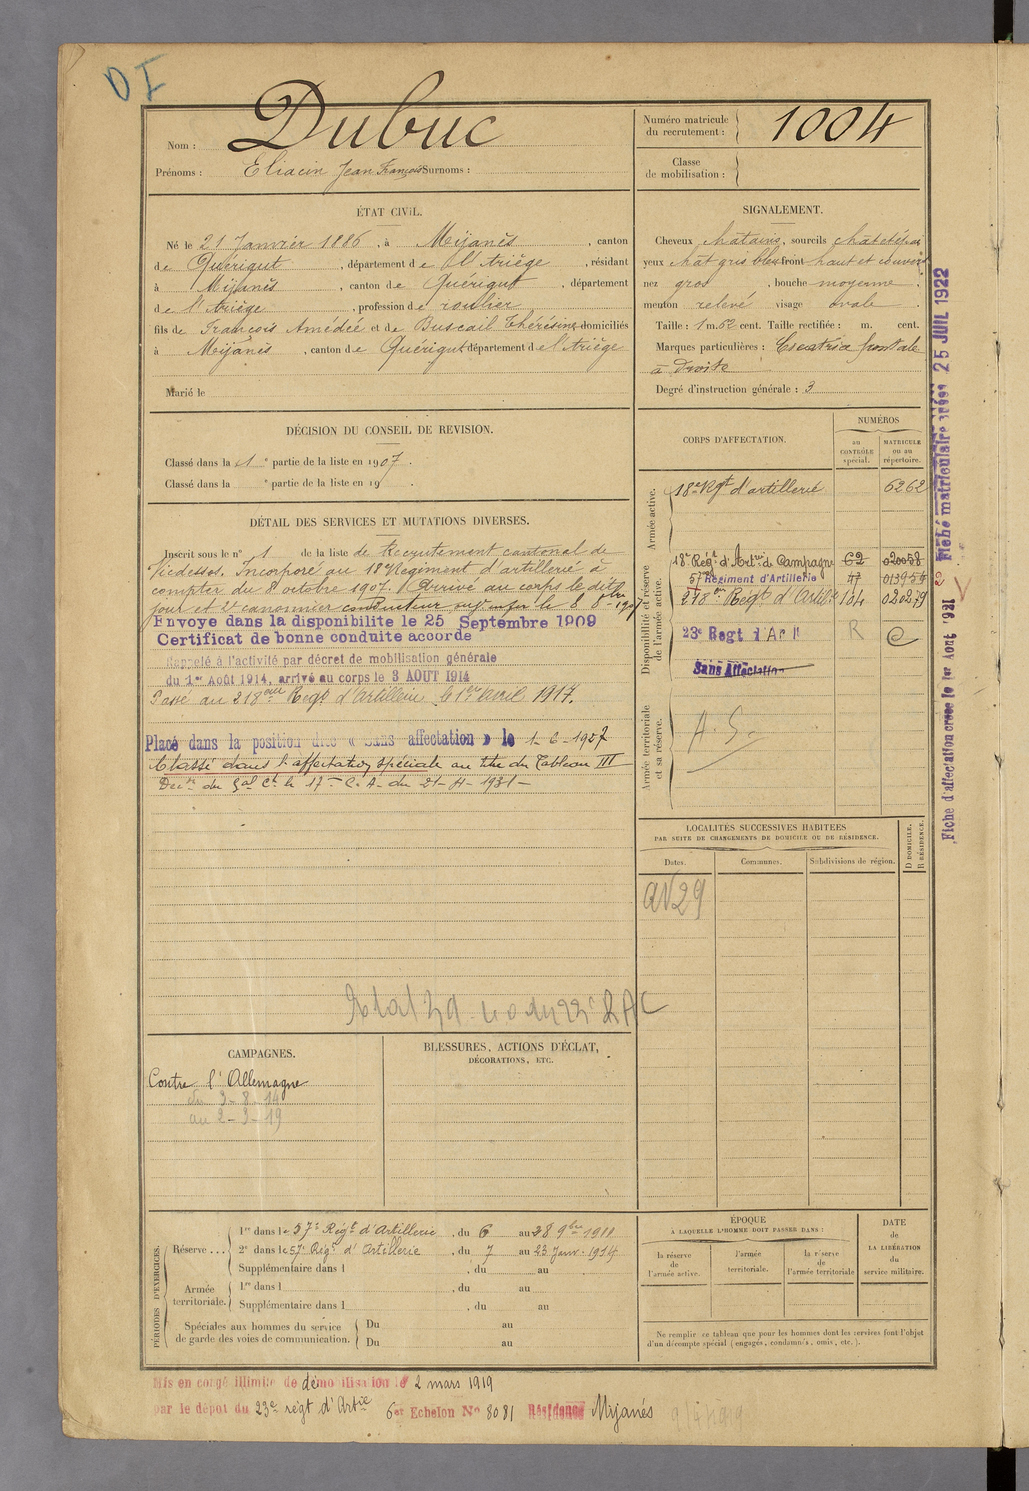 DI
Nom : Dubuc
Prénoms : Eliacin Jean François Surnoms :
Numéro matricule du recrutement : 1004
Classe de mobilisation :
ÉTAT CIVIL.
Né le 21 Janvier 1886, à Mijanès, canton
de Quérigut, département de l'Ariège, résidant
à Mijanès, canton de Quérigut, département
de l'Ariège, profession de roulier
fils de François Amédée et de Buscail Thérésine domiciliés
à Mijanès, canton de Quérigut département de l'Ariège
Marié le
SIGNALEMENT.
Cheveux châtains, sourcils
yeux chat gris bleu front haut et couvert
nez gros, bouche moyenne.
menton relevé visage ovale.
Taille : 1 m. 62 cent. Taille rectifiée : m. cent.
Marques particulières : Cicatrice frontale
à droite
Degré d'instruction générale : 3
DÉCISION DU CONSEIL DE REVISION.
Classé dans la 1e partie de la liste en 1907.
Classé dans la e partie de la liste en 19 .
DÉTAIL DES SERVICES ET MUTATIONS DIVERSES.
Inscrit sous le n° 1 de la liste de Recrutement cantonal de
Vicdessos. Incorporé au 18e Régiment d'artillerie à
compter du 8 octobre 1907. Arrivé au corps le dit
jour et 2e canonnier conducteur
Envoyé dans la disponibilité le 25 Septembre 1909
Certificat de bonne conduite accordé
Rappelé à l'activité par décret de mobilisation générale
du 1er Août 1914, arrivé au corps le 3 AOUT 1914
Passé au 218eme Regt d'Artillerie le 1er Avril 1917.
Placé dans la position dite « Sans affectation » le 1-6-1927
Classé dans l'affectation spéciale au titre du Tableau III
Don du Gal Ct le 17e C. A. du 21-4-1931-
CORPS D'AFFECTATION.
NUMÉROS
au CONTRÔLE spécial.
MATRICULE ou au répertoire.
Armée active.
18e Rgt d'artillerie 6262
Disponibilité et réserve de l'armée active.
18e Régt d'Artrie de Campagne 62 020058
57 Régiment d'Artillerie 47
218em Regt d'Artil. 104 020279
23e Regt d'Art R
Sans Affectation
Armée territoriale et sa réserve.
A. S.
LOCALITÉS SUCCESSIVES HABITÉES
PAR SUITE DE CHANGEMENTS DE DOMICILE OU DE RÉSIDENCE.
Dates. Communes. Subdivisions de région. D DOMICILE. R RÉSIDENCE.
CAMPAGNES.
Contre l'Allemagne
du 3-8-14
au 2-3-19
BLESSURES, ACTIONS D'ÉCLAT,
DÉCORATIONS, ETC.
PÉRIODES D'EXERCICES.
Réserve ... 1re dans le 57e Régt d'Artillerie, du 6 au 28 9bre 1911
2e dans le 57e Régt d'Artillerie, du 7 au 23 Janv. 1914
Supplémentaire dans l , du au
Armée territoriale. 1re dans l , du au
Supplémentaire dans l , du au
Spéciales aux hommes du service de garde des voies de communication. Du au
Du au
ÉPOQUE
À LAQUELLE L'HOMME DOIT PASSER DANS :
la réserve de l'armée active.
l'armée territoriale.
la réserve de l'armée territoriale
DATE de LA LIBÉRATION du service militaire.
Ne remplir ce tableau que pour les hommes dont les services font l'objet
d'un décompte spécial (engagés, condamnés, omis, etc.).
Mis en congé illimité de démobilisation le 2 mars 1919
par le dépôt du 23e régt d'Artie 6er Echelon No 8081 Résidence Mijanés
Fiche d'affectation créée le 1er Août 1921
Fiche matriculaire 25 JUIL 1922